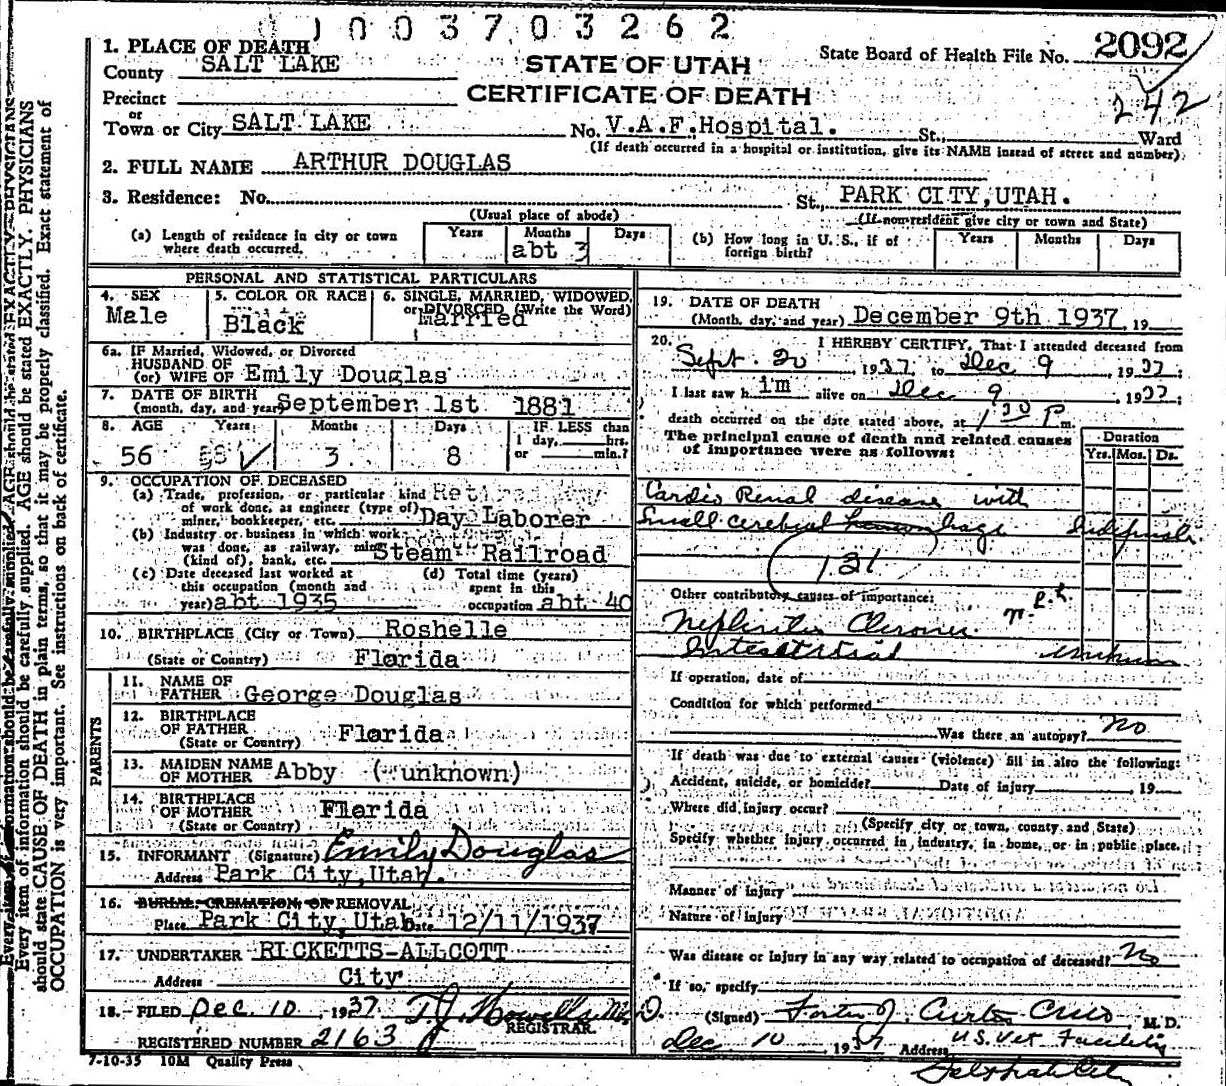 1003703262
1. PLACE OF DEATH
County SALT LAKE
STATE OF UTAH
State Board of Health File No. 2092
Precinct
CERTIFICATE OF DEATH
242
or
Town or City SALT LAKE No. V.A.F. Hospital. St., Ward
(If death occurred in a hospital or institution, give its NAME instead of street and number)
2. FULL NAME ARTHUR DOUGLAS
3. Residence: No. St., PARK CITY, UTAH.
(Usual place of abode) (If non-resident give city or town and State)
(a) Length of residence in city or town where death occurred. Years Months abt 3 Days
(b) How long in U. S., if of foreign birth? Years Months Days
PERSONAL AND STATISTICAL PARTICULARS
4. SEX Male
5. COLOR OR RACE Black
6. SINGLE, MARRIED, WIDOWED, or DIVORCED (Write the Word) Married
6a. IF Married, Widowed, or Divorced
HUSBAND OF
(or) WIFE OF Emily Douglas
7. DATE OF BIRTH
(month, day, and year) September 1st 1881
8. AGE Years Months Days IF LESS than
1 day, hrs.
or min.?
56 3 8
9. OCCUPATION OF DECEASED
(a) Trade, profession, or particular kind of work done, as engineer (type of) miner, bookkeeper, etc. Retired Day Laborer
(b) Industry or business in which work was done, as railway, mine (kind of), bank, etc. Steam Railroad
(c) Date deceased last worked at this occupation (month and year) abt 1935
(d) Total time (years) spent in this occupation abt 40
10. BIRTHPLACE (City or Town) Roshelle
(State or Country) Florida
PARENTS
11. NAME OF FATHER George Douglas
12. BIRTHPLACE OF FATHER (State or Country) Florida
13. MAIDEN NAME OF MOTHER Abby (unknown)
14. BIRTHPLACE OF MOTHER (State or Country) Florida
15. INFORMANT (Signature) Emily Douglas
Address Park City, Utah.
16. BURIAL, CREMATION, OR REMOVAL
Place Park City, Utah Date 12/11/1937
17. UNDERTAKER RICKETTS-ALLCOTT
Address City
18. FILED Dec. 10, 1937 T J Howells M.D.
REGISTRAR.
REGISTERED NUMBER 2163
7-10-35 10M Quality Press
19. DATE OF DEATH
(Month, day, and year) December 9th 1937, 19
20. I HEREBY CERTIFY, That I attended deceased from
Sept. 20, 1937, to Dec 9, 1937;
I last saw him alive on Dec 9, 1937;
death occurred on the date stated above, at 1 30 P m.
The principal cause of death and related causes of importance were as follows:
Duration
Yrs. Mos. Ds.
Cardio Renal disease with
Small cerebral hemorrhage
131
Other contributory causes of importance:
Nephritis Chronic
Interstitial unknown
If operation, date of
Condition for which performed
Was there an autopsy? No
If death was due to external causes (violence) fill in also the following:
Accident, suicide, or homicide? Date of injury 19
Where did injury occur?
(Specify city or town, county and State)
Specify whether injury occurred in industry, in home, or in public place.
Manner of injury
Nature of injury
Was disease or injury in any way related to occupation of deceased? No
If so, specify
(Signed) Foster J. Curtis M. D.
Dec 10, 1937 Address U.S. Vet Facility
Salt Lake City
Every item of information should be carefully supplied. AGE should be stated EXACTLY. PHYSICIANS
should state CAUSE OF DEATH in plain terms, so that it may be properly classified. Exact statement of
OCCUPATION is very important. See instructions on back of certificate.